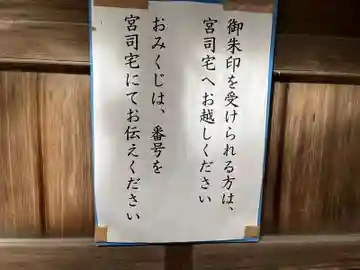 御朱印を受けられる方は、
宮司宅へお越しください
おみくじは、番号を
宮司宅にてお伝えください